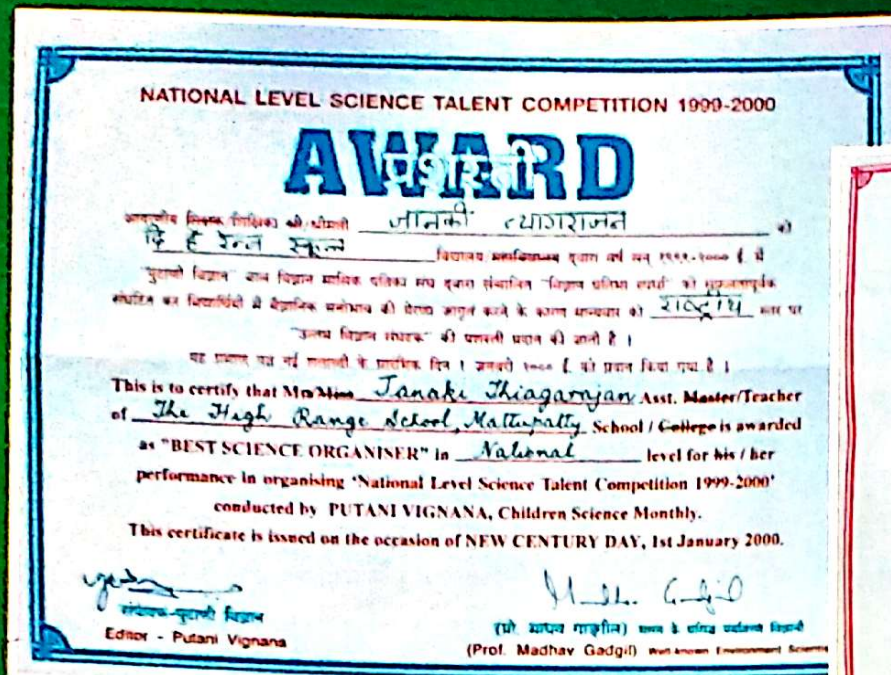 NATIONAL LEVEL SCIENCE TALENT COMPETITION 1999-2000
AWARD
प्रशस्ती
आदरणीय शिक्षक/शिक्षिका श्री/श्रीमती जानकी त्यागराजन को
दि है रेन्ज स्कूल विद्यालय/महाविद्यालय द्वारा वर्ष सन् १९९९-२००० ई. में
"पुटाणी विज्ञान" बाल विज्ञान मासिक पत्रिका संघ द्वारा संचालित "विज्ञान प्रतिभा स्पर्धा" को
संघटित कर विद्यार्थियों में वैज्ञानिक मनोभाव की प्रेरणा जागृत करने के कारण मान्यवर को राष्ट्रीय स्तर पर
"उत्तम विज्ञान संघटक" की प्रशस्ती प्रदान की जाती है ।
यह प्रमाण पत्र नई शताब्दी के प्रारंभिक दिन १ जनवरी २००० ई. को प्रदान किया गया है ।
This is to certify that Mrs/Miss Janaki Thiagarajan Asst. Master/Teacher
of The High Range School, Mattupatty School / College is awarded
as "BEST SCIENCE ORGANISER" in National level for his / her
performance in organising 'National Level Science Talent Competition 1999-2000'
conducted by PUTANI VIGNANA, Children Science Monthly.
This certificate is issued on the occasion of NEW CENTURY DAY, 1st January 2000.
Madhav Gadgil
संपादक-पुटाणी विज्ञान
Editor - Putani Vignana
(प्रो. माधव गाड्गील) भारत के प्रसिद्ध पर्यावरण विज्ञानी
(Prof. Madhav Gadgil) Well-known Environment